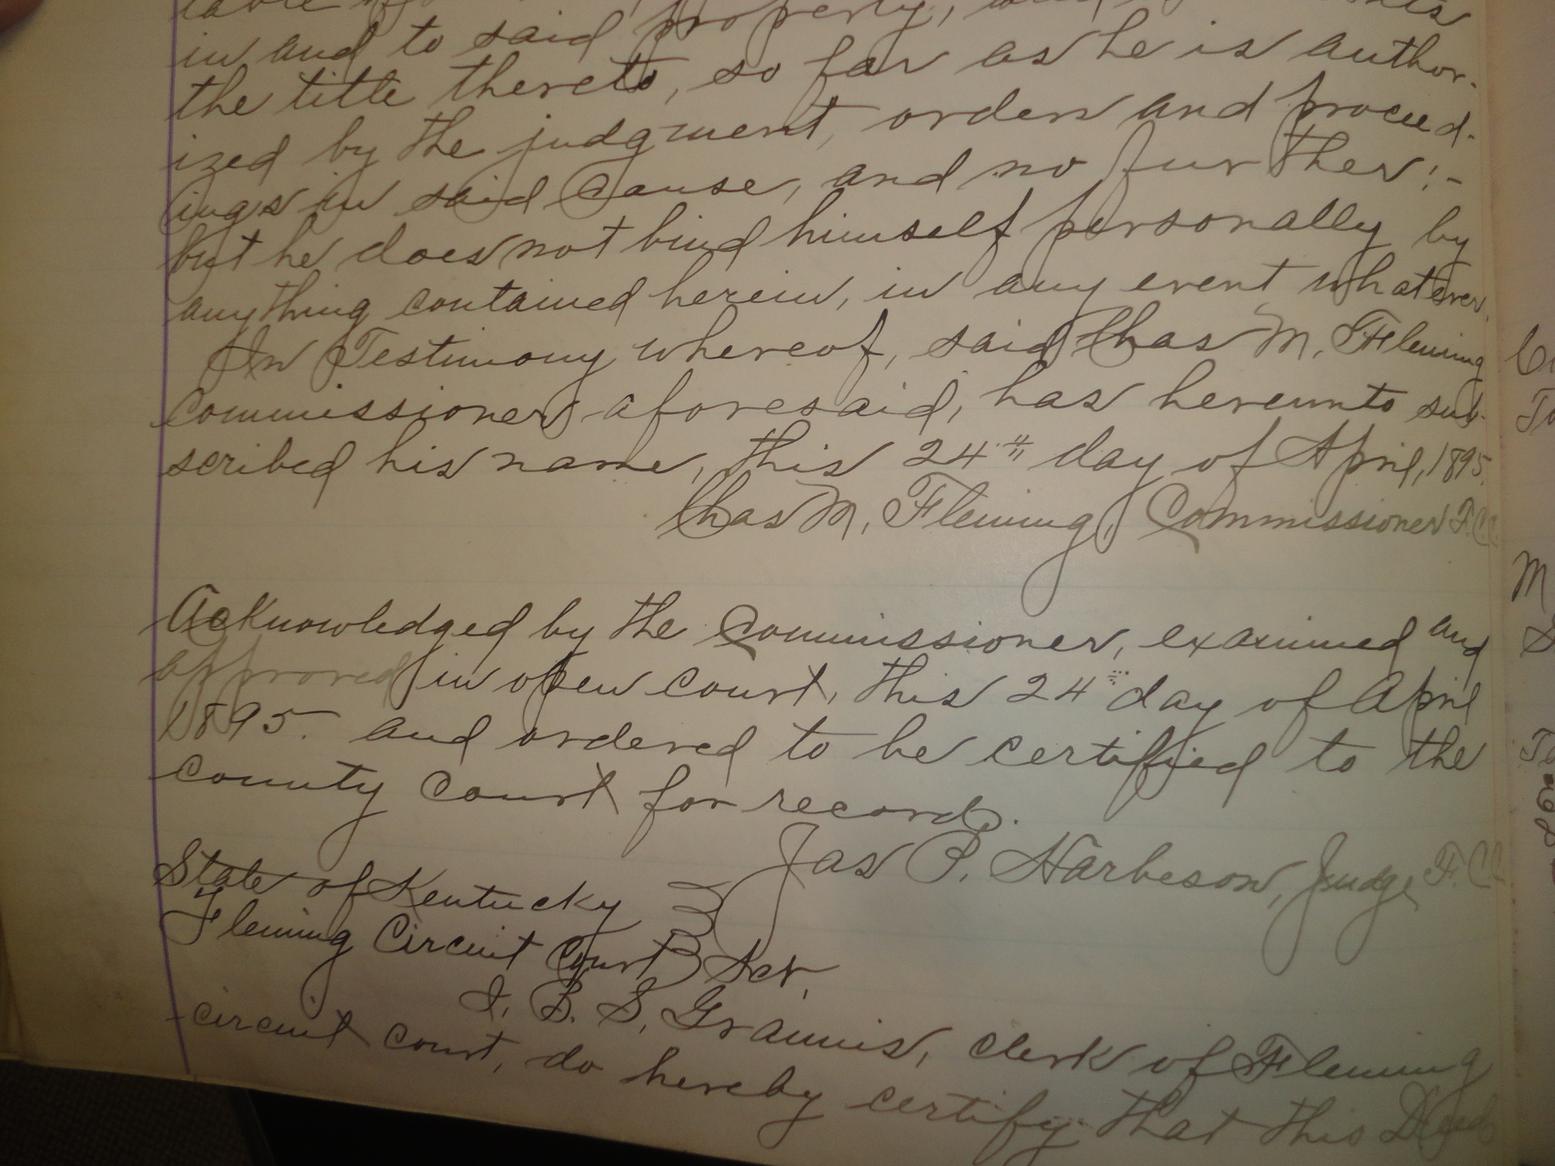 in and to said property,
the title thereto, so far as he is author-
ized by the judgment, orders and proceed-
ings in said cause, and no further:-
but he does not bind himself personally by
anything contained herein, in any event whatever.
In Testimony whereof, said Chas M. Fleming
Commissioner aforesaid, has hereunto sub-
scribed his name, this 24th day of April, 1895.
Chas M. Fleming, Commissioner F.C.C.
Acknowledged by the Commissioner, examined and
approved in open court, this 24" day of April
1895. and ordered to be certified to the
county court for record.
Jas P. Harbeson, Judge F.C.C.
State of Kentucky
Fleming Circuit Court } Sct,
I, B. S. Grannis, clerk of Fleming
circuit court, do hereby certify that this Deed